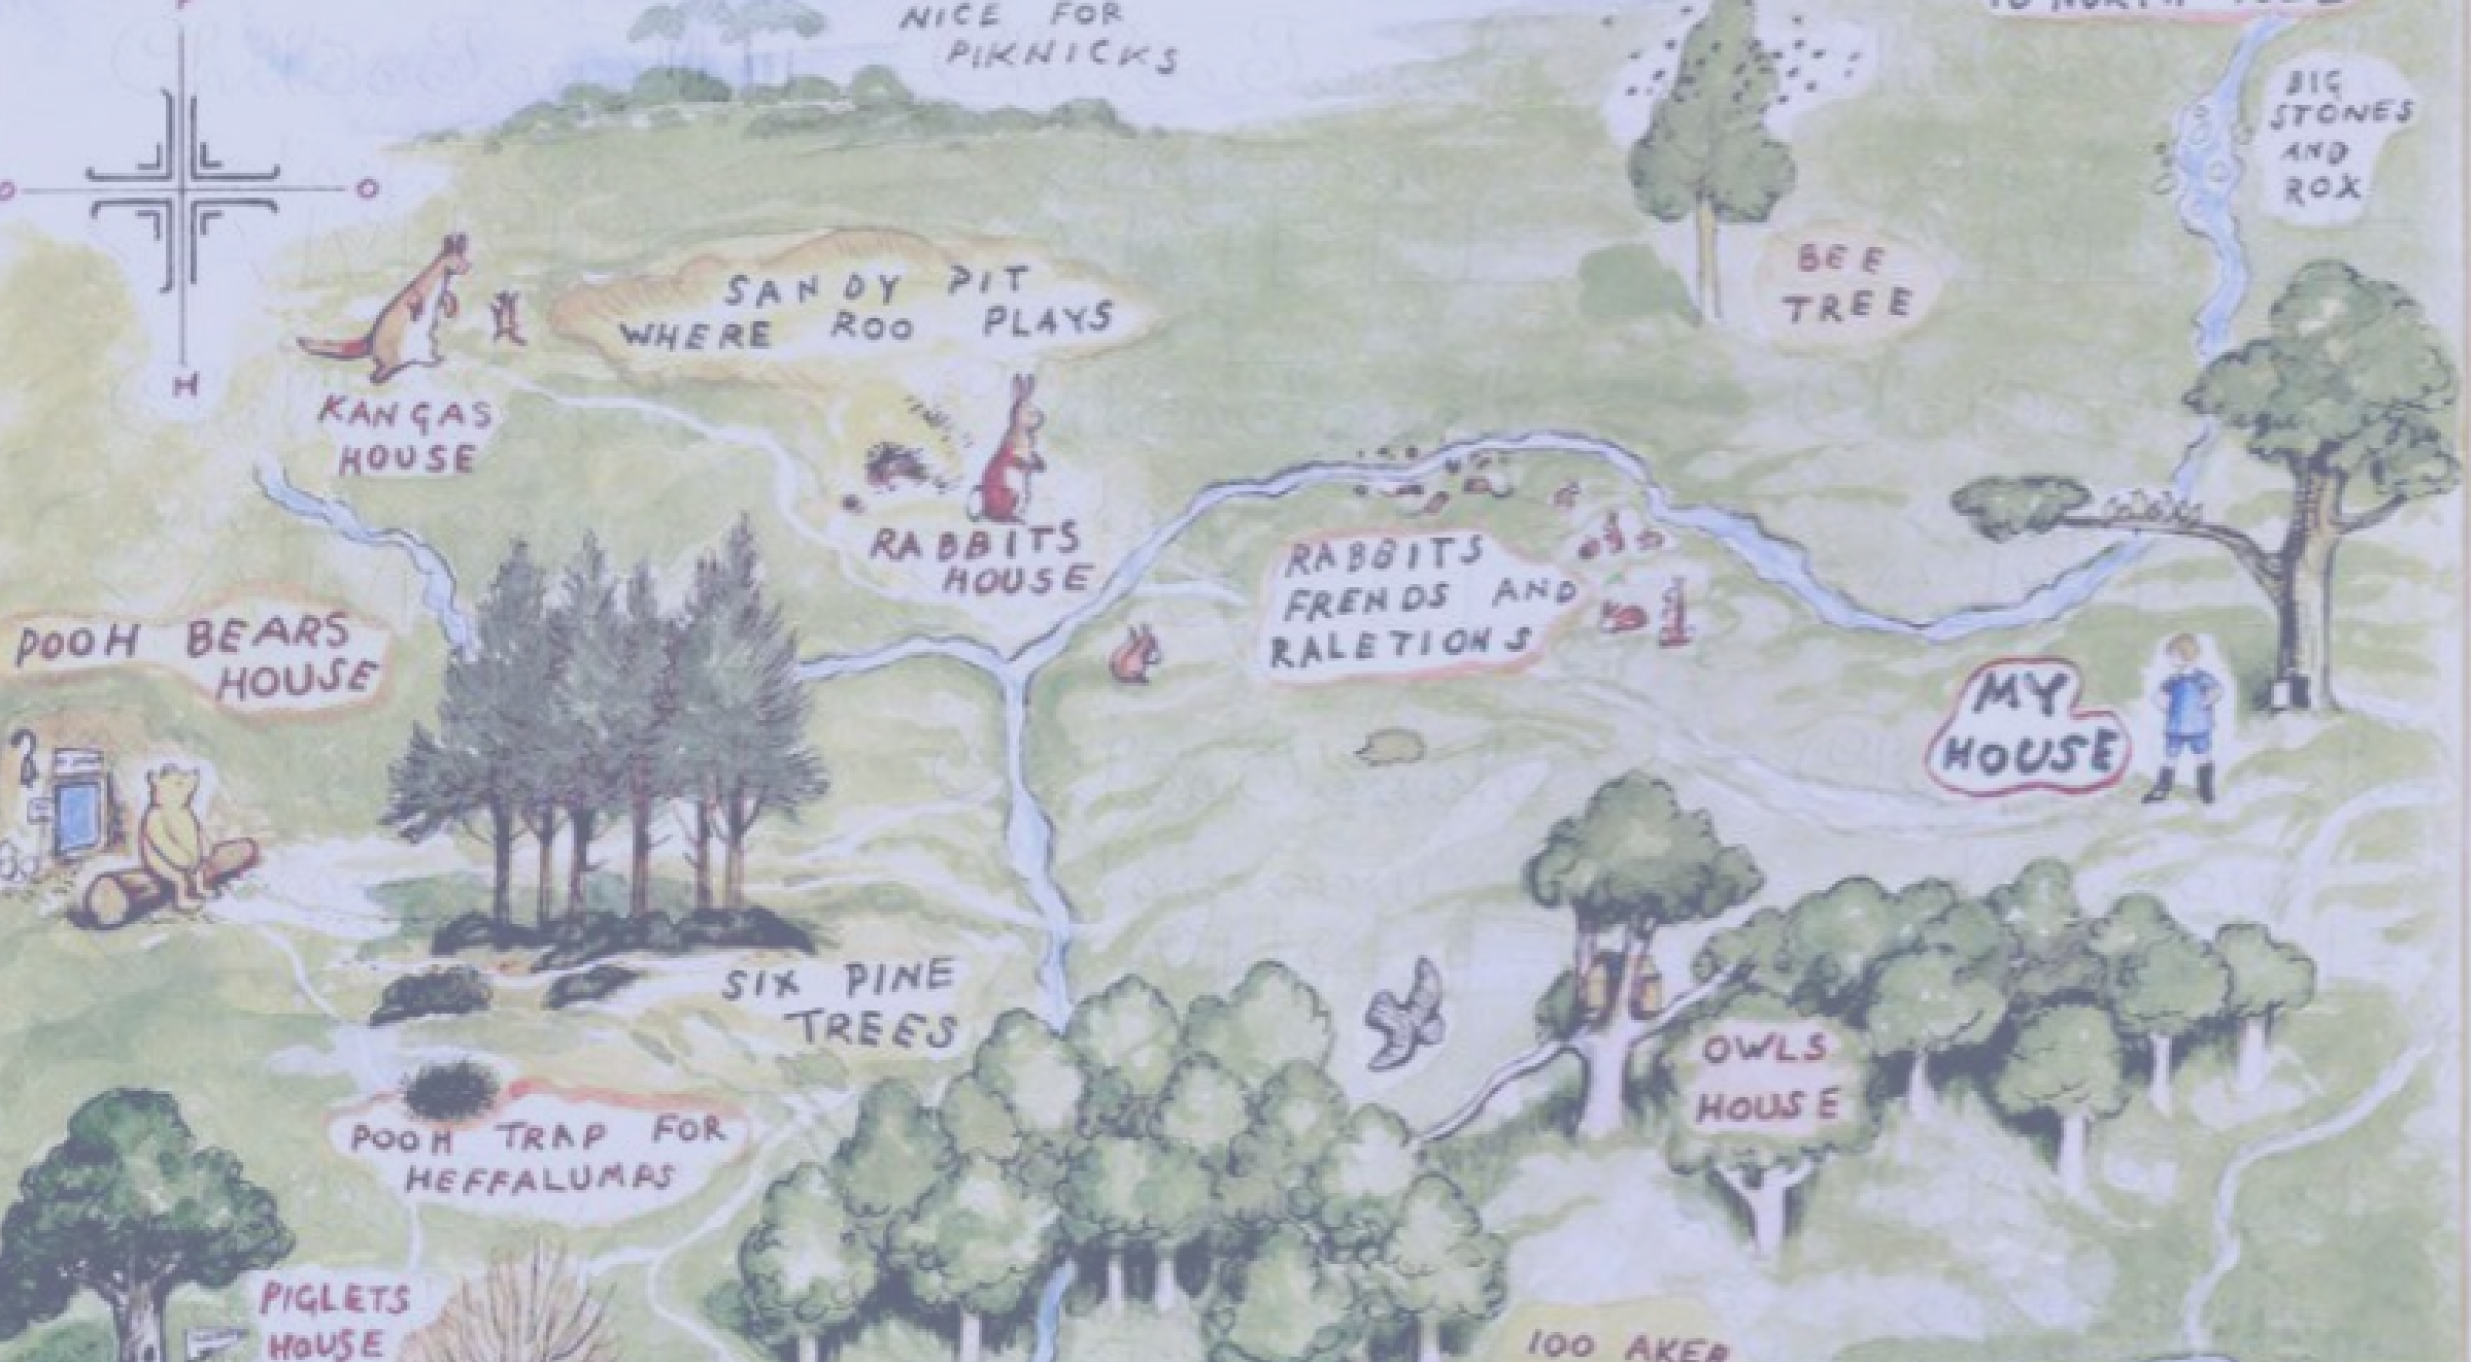 NICE FOR
PIKNICKS
BIG
STONES
AND
ROX
P
O
O
H
BEE
TREE
SANDY PIT
WHERE ROO PLAYS
KANGAS
HOUSE
RABBITS
HOUSE
RABBITS
FRENDS AND
RALETIONS
POOH BEARS
HOUSE
MY
HOUSE
SIX PINE
TREES
OWLS
HOUSE
POOH TRAP FOR
HEFFALUMPS
PIGLETS
HOUSE
100 AKER